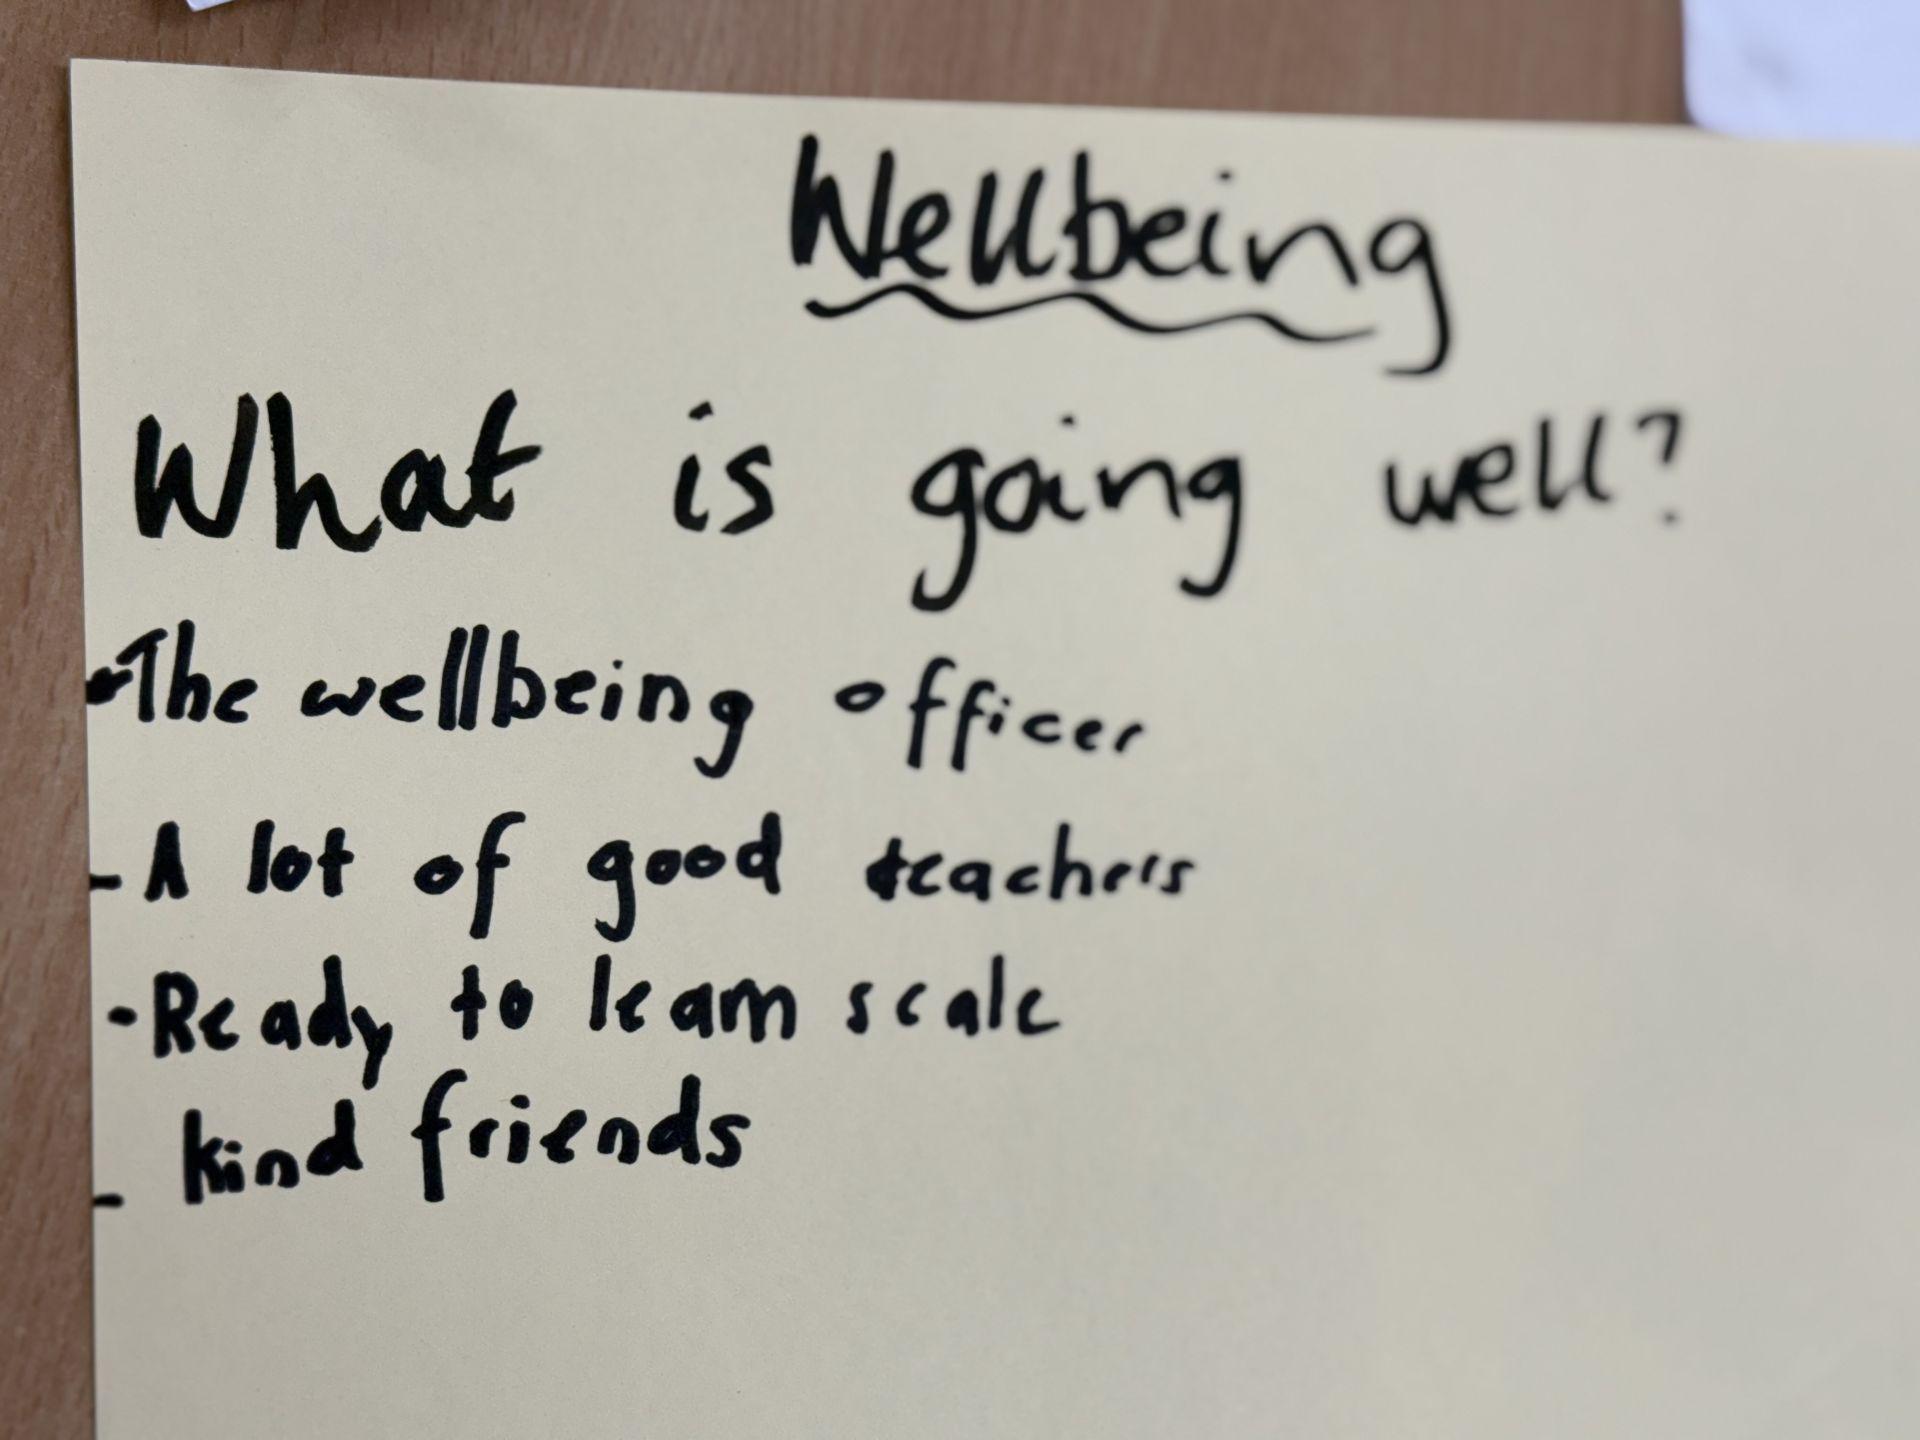 Wellbeing
What is going well?
- The wellbeing officer
- A lot of good teachers
- Ready to learn scale
- kind friends